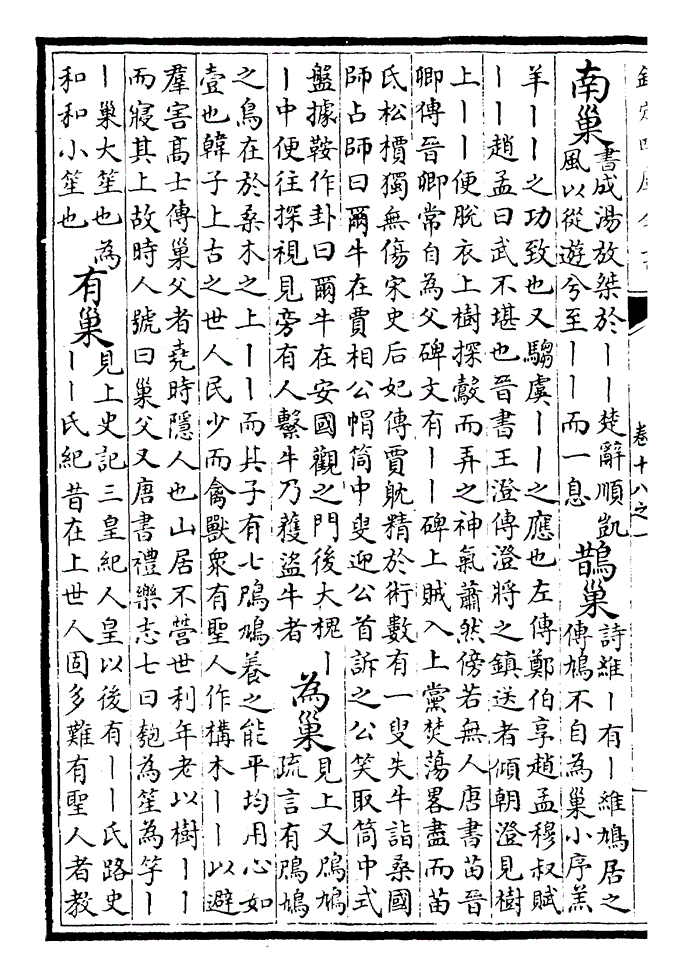 卷十八之一
南巢
書成湯放桀於｜｜楚辭順凱
風以從遊兮至｜｜而一息
鵲巢
詩維｜有｜維鳩居之
傳鳩不自為巢小序羔
羊｜｜之功致也又騶虞｜｜之應也左傳鄭伯享趙孟穆叔賦
｜｜趙孟曰武不堪也晉書王澄傳澄將之鎮送者傾朝澄見樹
上｜｜便脫衣上樹探鷇而弄之神氣蕭然傍若無人唐書苗晉
卿傳晉卿常自為父碑文有｜｜碑上賊入上黨焚蕩畧盡而苗
氏松檟獨無傷宋史后妃傳賈躭精於術數有一叟失牛詣桑國
師占師曰爾牛在賈相公帽筒中叟迎公首訴之公笑取筒中式
盤據鞍作卦曰爾牛在安國觀之門後大槐｜
｜中便往探視見旁有人繫牛乃獲盜牛者
為巢
見上又鳲鳩
疏言有鳲鳩
之鳥在於桑木之上｜｜而其子有七鳲鳩養之能平均用心如
壹也韓子上古之世人民少而禽獸衆有聖人作構木｜｜以避
羣害高士傳巢父者堯時隱人也山居不營世利年老以樹｜｜
而寢其上故時人號曰巢父又唐書禮樂志七曰匏為笙為竽｜
｜巢大笙也為
和和小笙也
有巢
見上史記三皇紀人皇以後有｜｜氏路史
｜｜氏紀昔在上世人固多難有聖人者教